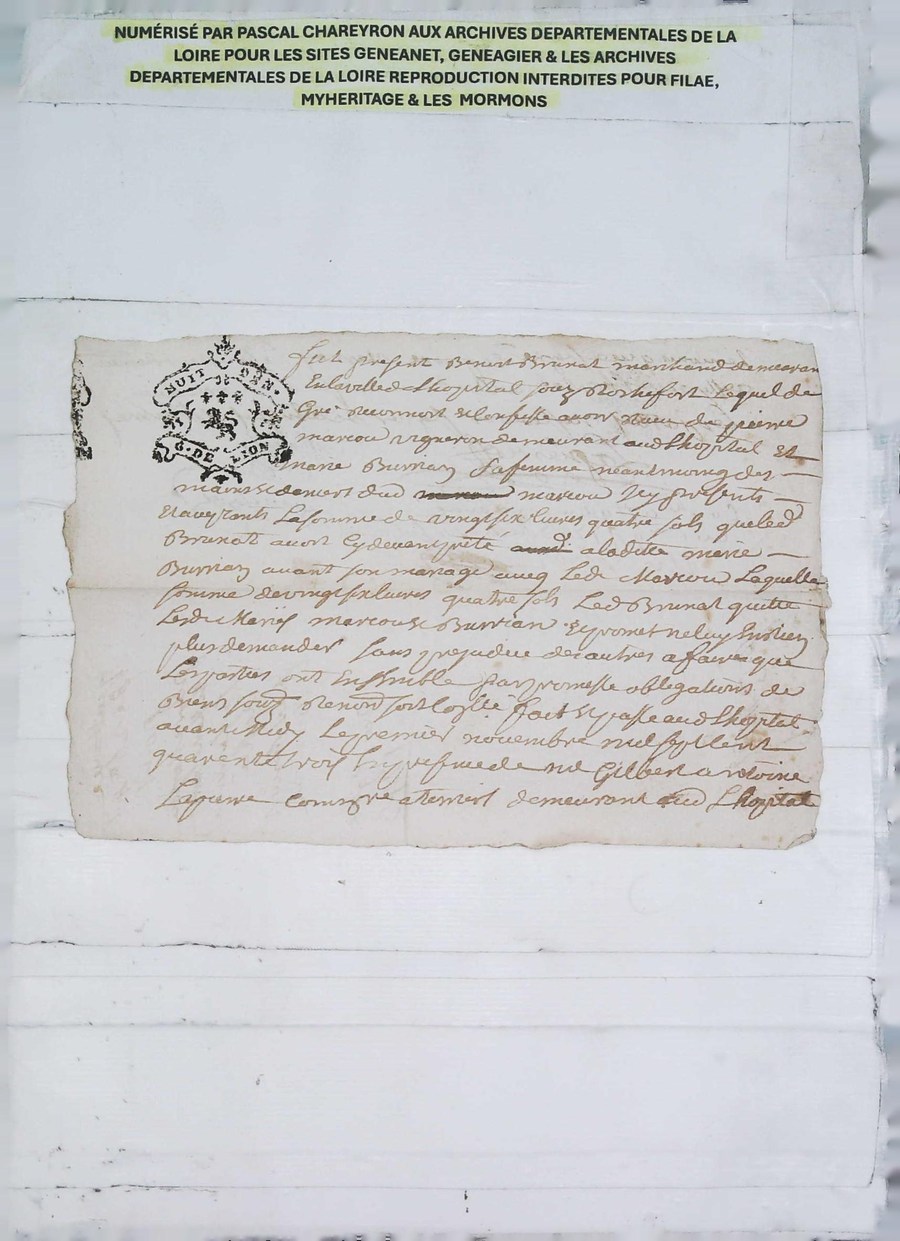 NUMÉRISÉ PAR PASCAL CHAREYRON AUX ARCHIVES DEPARTEMENTALES DE LA
LOIRE POUR LES SITES GENEANET, GENEAGIER & LES ARCHIVES
DEPARTEMENTALES DE LA LOIRE REPRODUCTION INTERDITES POUR FILAE,
MYHERITAGE & LES MORMONS
HUIT DEN.
G. DE LION
fut present Benoit Brunat marchand demeuran
En la ville de Lhopital souz Rochefort Lequel de
Gré Reconnoit & Confesse avoir Receu de pierre
marcou vigneron demeurant aud Lhopital Et
marie Burrian sa femme neantmoing des
mains & deniers dud marcou Icy presents
Et aceptants La somme de vingt six Livres quatre sols que led
Brunat avoit Cy devant preté a ladite marie
Burrian avant son mariage avec Led Marcou Laquelle
somme de vingt six Livres quatre sols Led Brunat quitte
Lesd Mariés marcou & Burrian & promet ne leur En rien
plus demander sans prejudice des autres affaires que
Les parties ont Ensemble par promesse obligations de
Biens Renond fait & passe aud Lhopital
avant Midy Le premier novembre mil sept Cent
quarente trois En presence de Gilbert antoine
Lapierre demeurant aud Lhopital